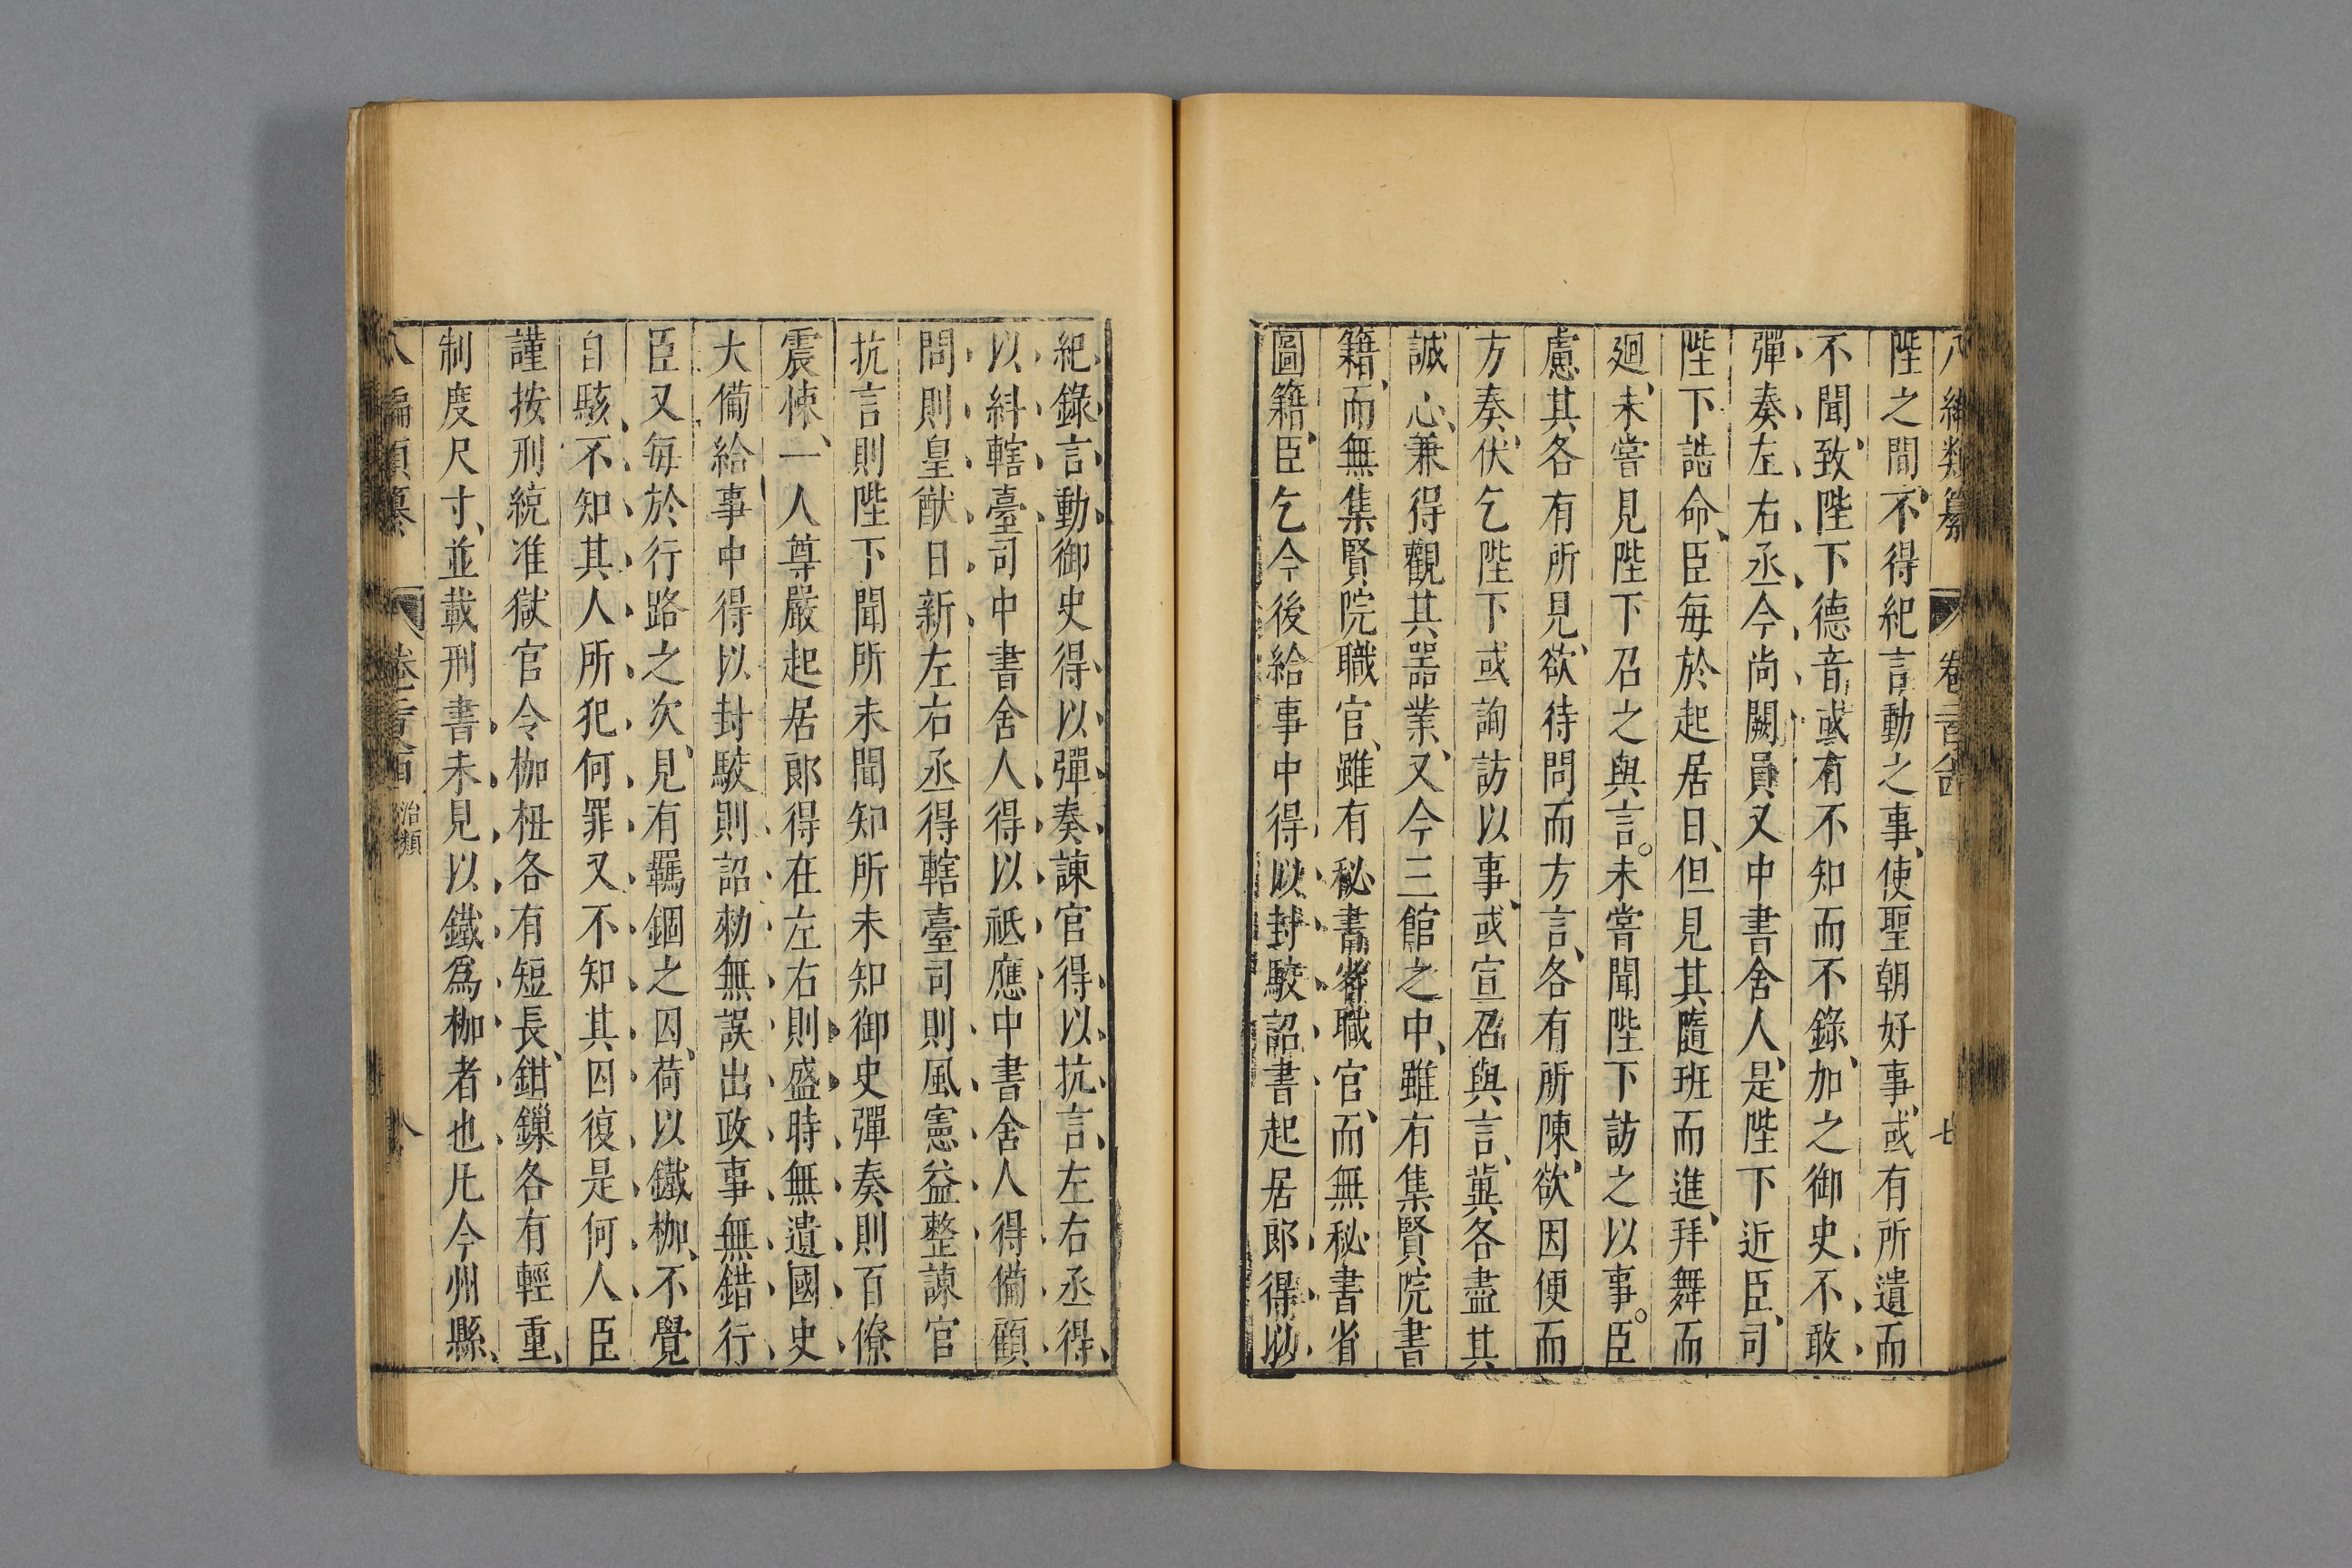 八編類纂 卷 七
陛之間不得紀言動之事使聖朝好事或有所遺而
不聞致陛下德音或有不知而不錄加之御史不敢
彈奏左右丞今尚闕員又中書舍人是陛下近臣司
陛下誥命臣每於起居日但見其隨班而進拜舞而
廻未嘗見陛下召之與言未嘗聞陛下訪之以事臣
慮其各有所見欲待問而方言各有所陳欲因便而
方奏伏乞陛下或詢訪以事或宣召與言冀各盡其
誠心兼得觀其器業又今三館之中雖有集賢院書
籍而無集賢院職官雖有秘書省職官而無秘書省
圖籍臣乞今後給事中得以封駮詔書起居郎得以
紀錄言動御史得以彈奏諫官得以抗言左右丞得
以糾轄臺司中書舍人得以祗應中書舍人得備顧
問則皇猷日新左右丞得轄臺司則風憲益整諫官
抗言則陛下聞所未聞知所未知御史彈奏則百僚
震悚一人尊嚴起居郎得在左右則盛時無遺國史
大備給事中得以封駮則詔勑無誤出政事無錯行
臣又每於行路之次見有羈錮之囚荷以鐵枷不覺
自駭不知其人所犯何罪又不知其囚復是何人臣
謹按刑統准獄官令枷杻各有短長鉗鏁各有輕重
制度尺寸並載刑書未見以鐵爲枷者也凡今州縣
八編類纂 卷 治類 八